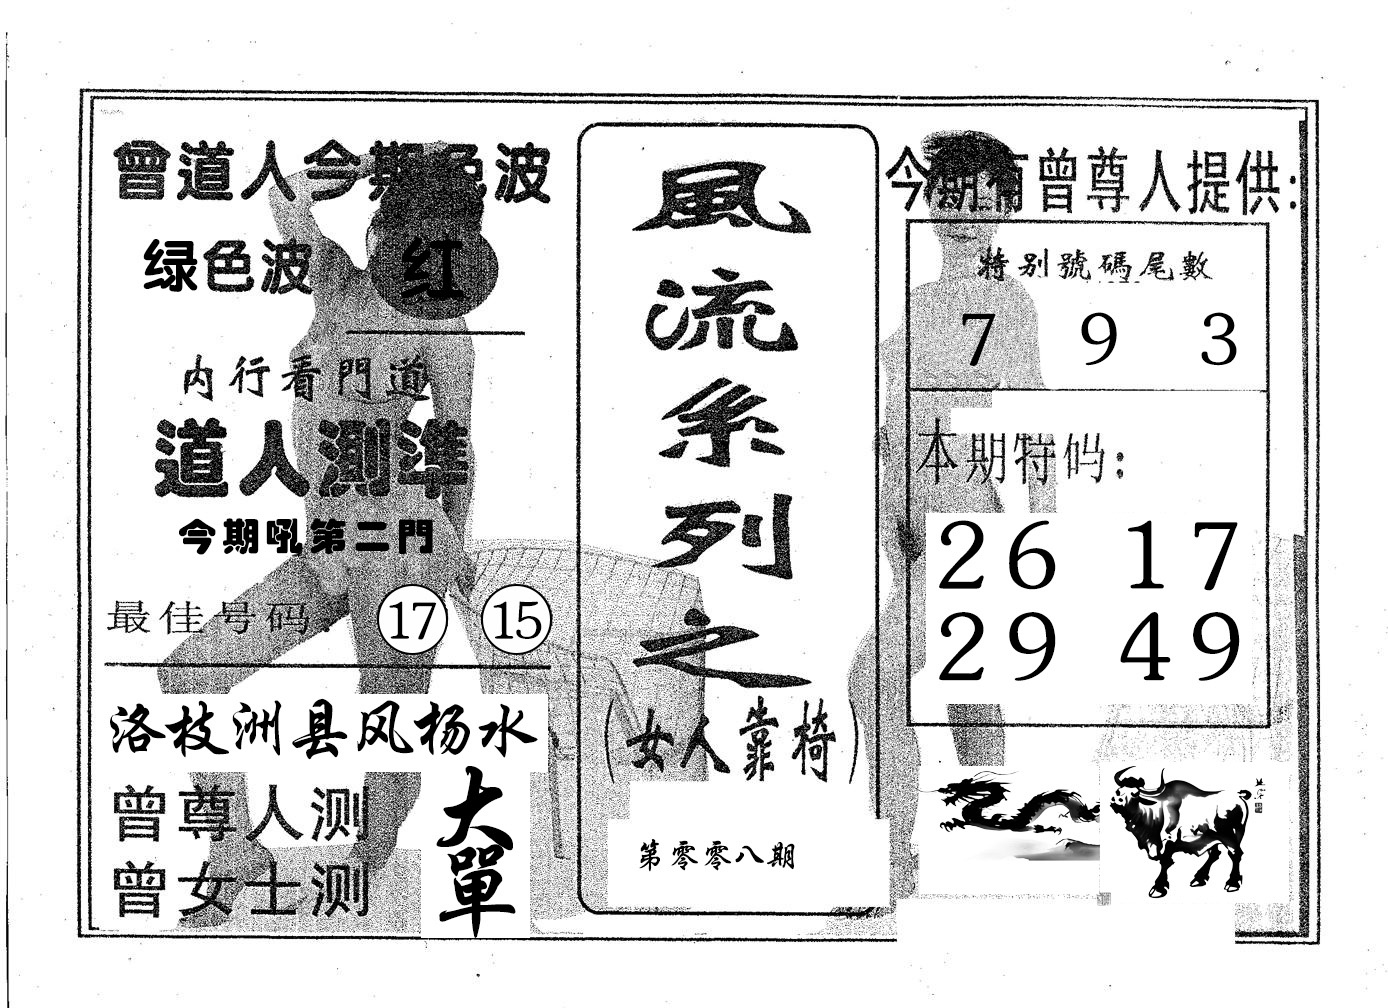 曾道人今期色波
绿色波 红
内行看門道
道人測準
今期吼第二門
最佳号码: 17 15
洛枝洲县风杨水
曾尊人测
曾女士测
大單
風流系列之
(女人靠椅)
第零零八期
今期有曾尊人提供:
特别號碼尾數
7 9 3
本期特码:
26 17
29 49